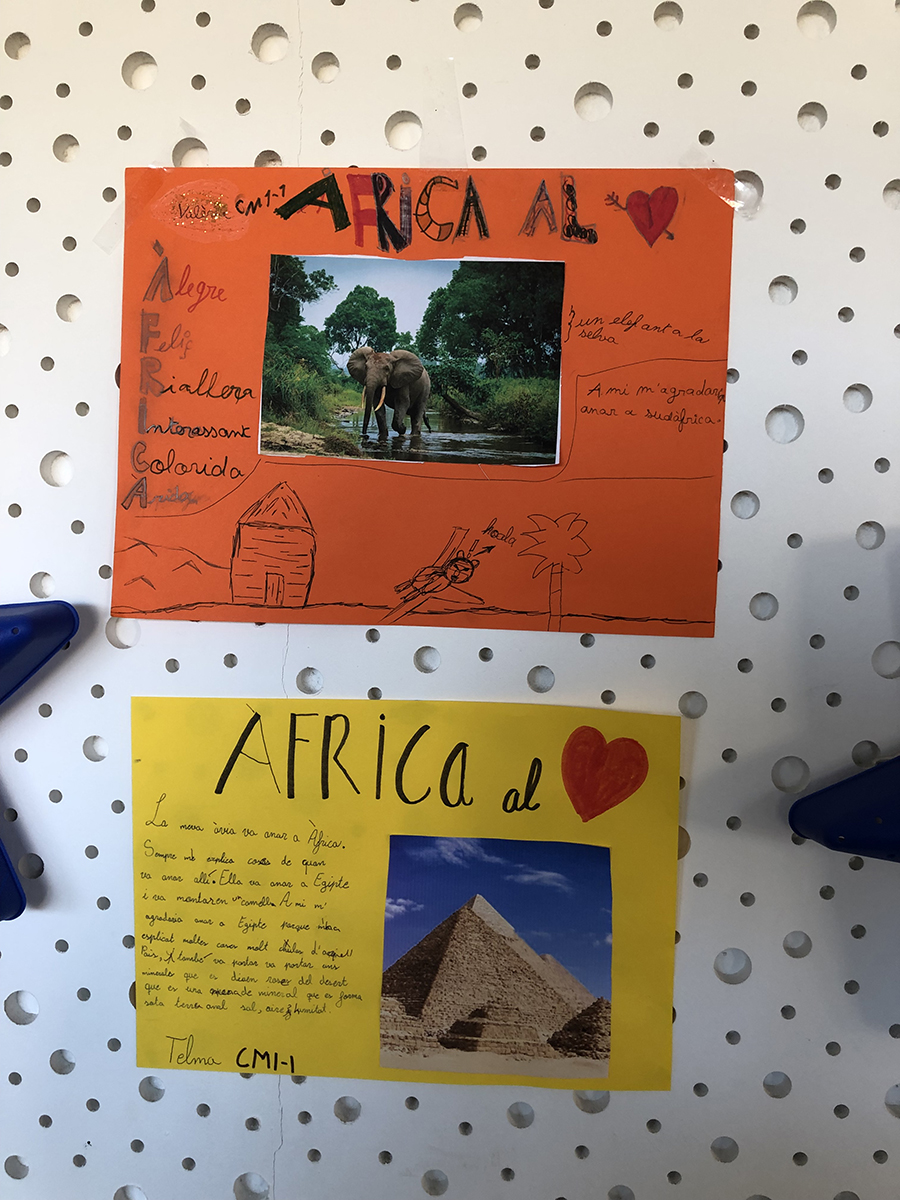 Valèria CM1-1 AFRICA AL
Àlegre
Feliç
Riallera
Interassant
Colorida
A
} un elefant a la
selva
A mi m'agradaria
anar a sudàfrica.
koala
AFRICA al
La meva àvia va anar a Àfrica.
Sempre me explica coses de quan
va anar allí. Ella va anar a Egipte
i va montar en camell. A mi m'
agradaria anar a Egipte perque m'ha
explicat moltes coses molt chules d'aquell
País, també va portar va portar uns
minerals que es diuen roses del desert
que es una de mineral que es forma
sota terra amb sal, aire i humitat.
Telma CM1-1